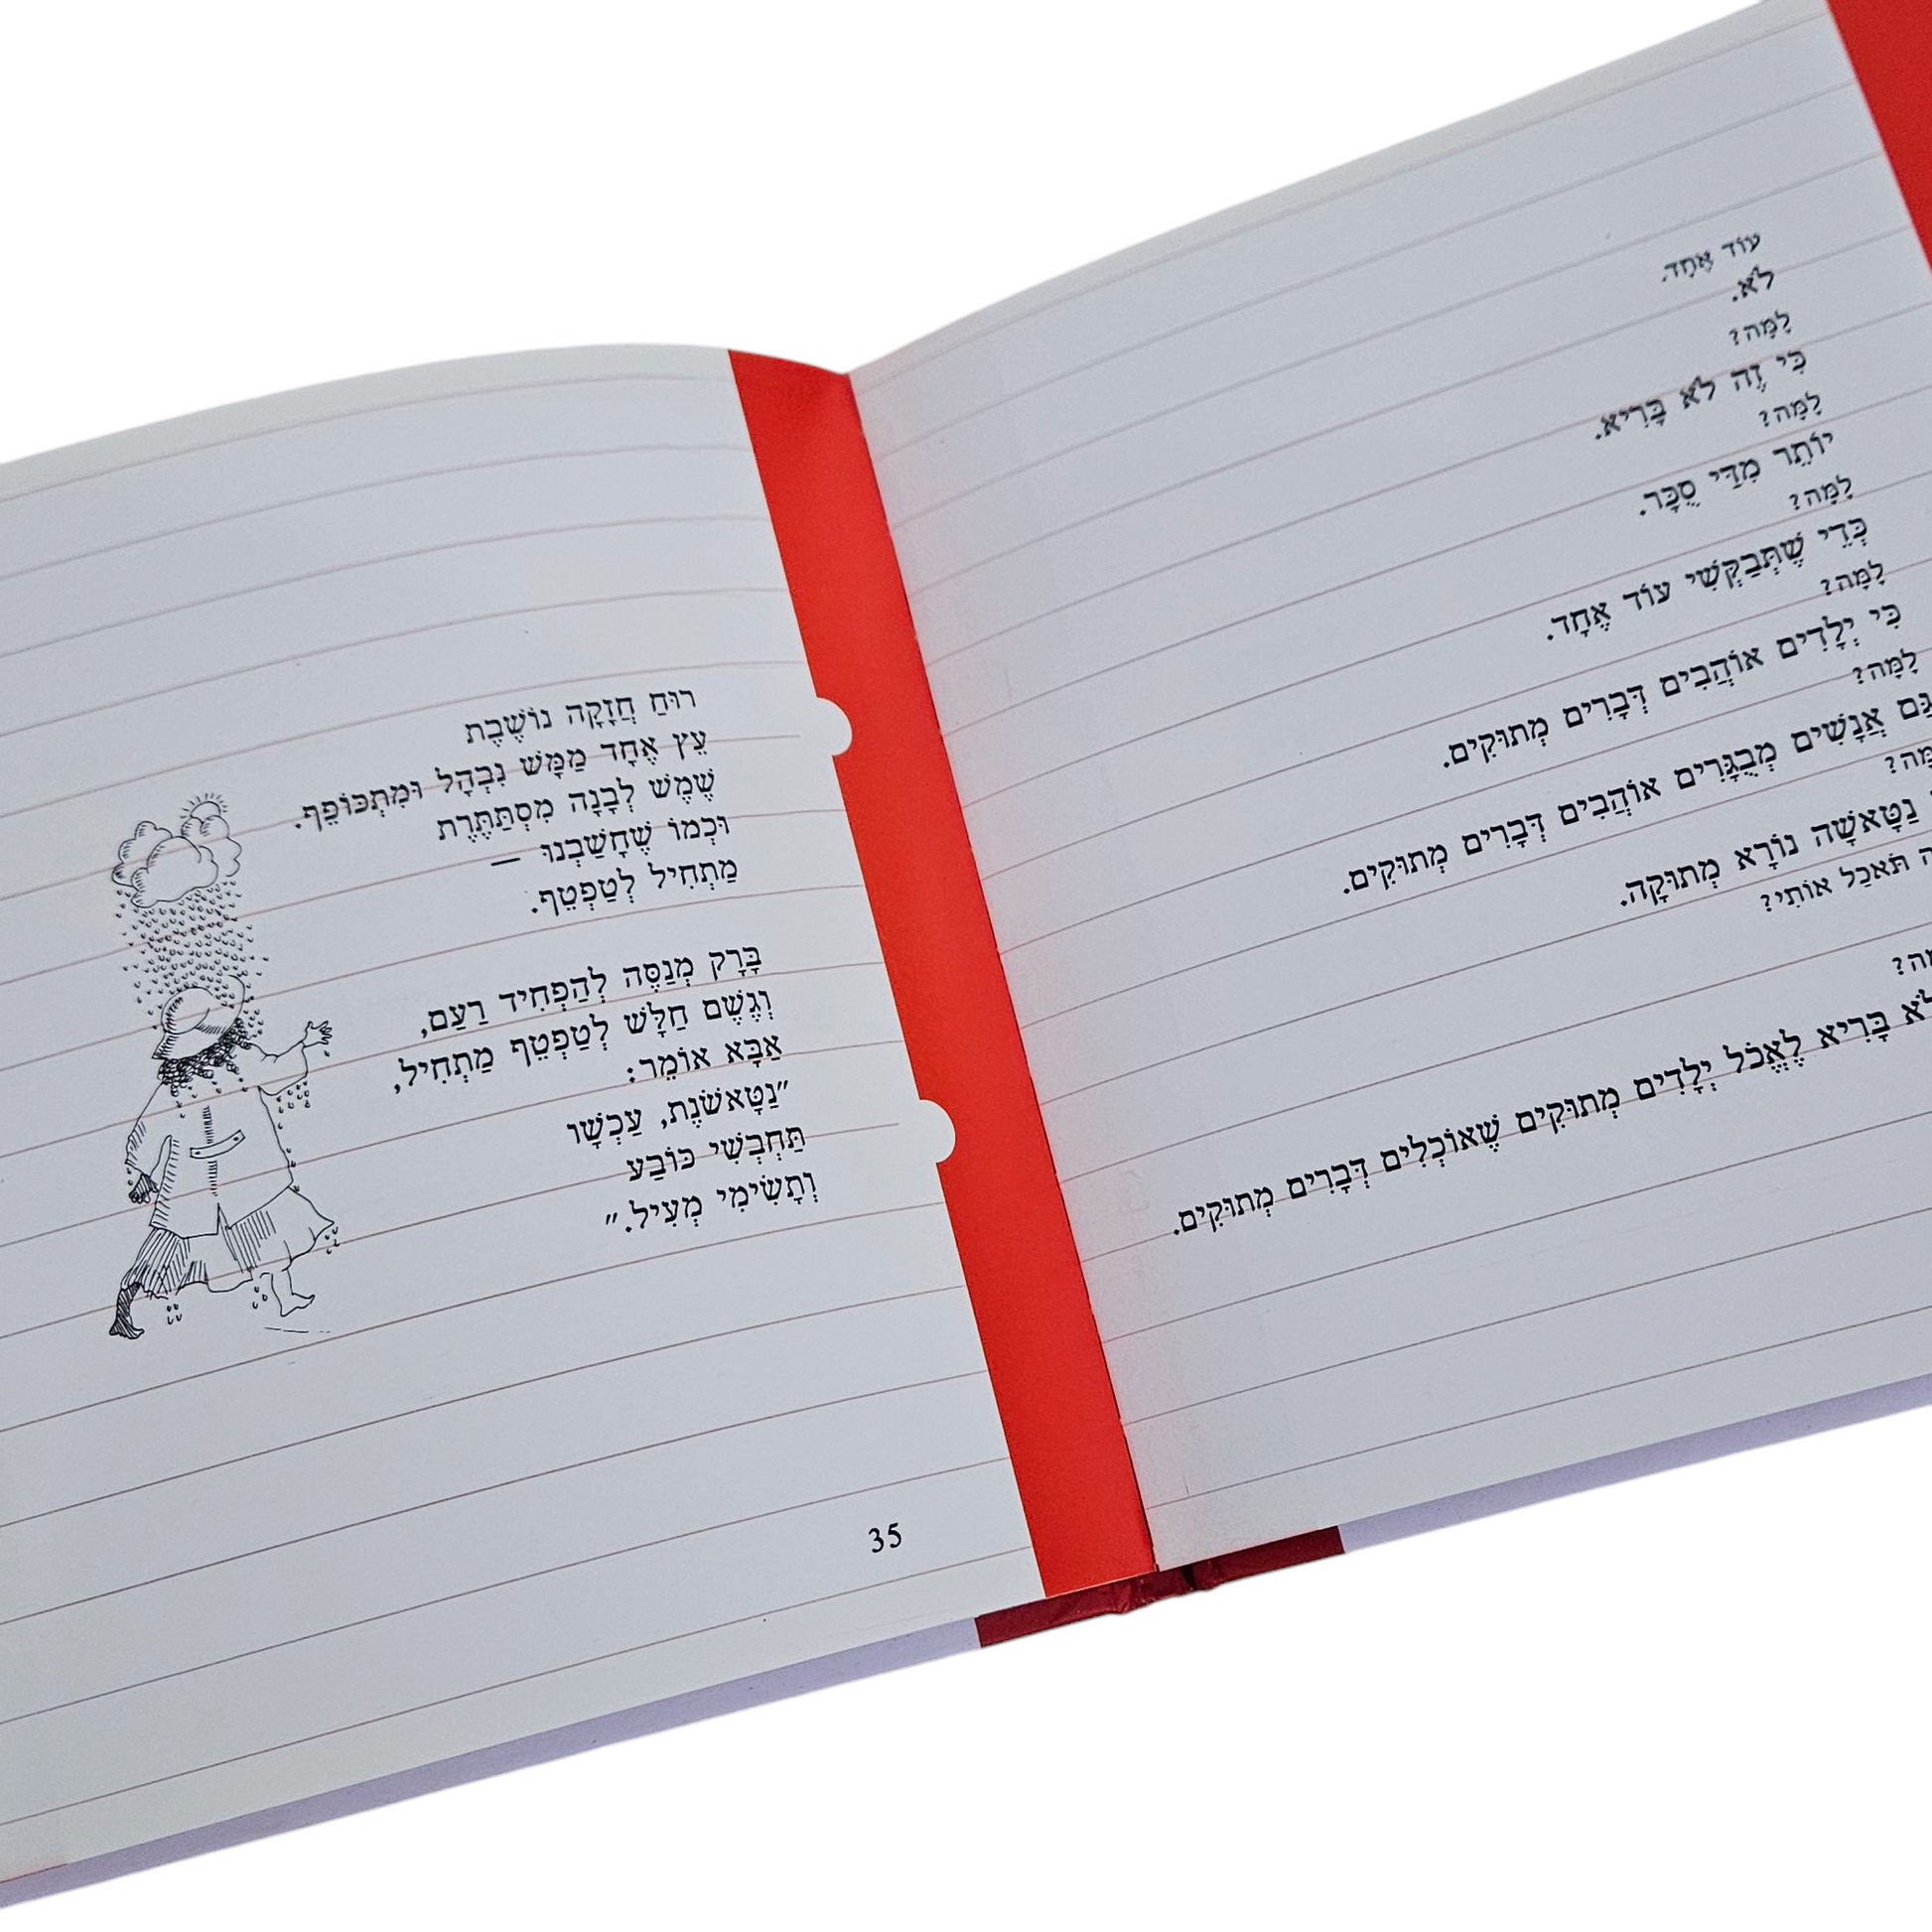 עוֹד אֶחָד.
לֹא.
לָמָּה?
כִּי זֶה לֹא בָּרִיא.
לָמָּה?
יוֹתֵר מִדַּי סֻכָּר.
לָמָּה?
כְּדֵי שֶׁתְּבַקְשִׁי עוֹד אֶחָד.
לָמָּה?
כִּי יְלָדִים אוֹהֲבִים דְּבָרִים מְתוּקִים.
לָמָּה?
גַּם אֲנָשִׁים מְבֻגָּרִים אוֹהֲבִים דְּבָרִים מְתוּקִים.
מָּה?
נַטָּאשָׁה נוֹרָא מְתוּקָה.
תֹּאכַל אוֹתִי?
מָּה?
לֹא בָּרִיא לֶאֱכֹל יְלָדִים מְתוּקִים שֶׁאוֹכְלִים דְּבָרִים מְתוּקִים.
רוּחַ חֲזָקָה נוֹשֶׁבֶת
עֵץ אֶחָד מַמָּשׁ נִבְהָל וּמִתְכּוֹפֵף.
שֶׁמֶשׁ לְבָנָה מִסְתַּתֶּרֶת
וּכְמוֹ שֶׁחָשַׁבְנוּ —
מַתְחִיל לְטַפְטֵף.
בָּרָק מְנַסֶּה לְהַפְחִיד רַעַם,
וְגֶשֶׁם חַלָּשׁ לְטַפְטֵף מַתְחִיל,
אַבָּא אוֹמֵר:
"נַטָּאשֹׁנֶת, עַכְשָׁו
תַּחְבְּשִׁי כּוֹבַע
וְתָשִׂימִי מְעִיל."
35